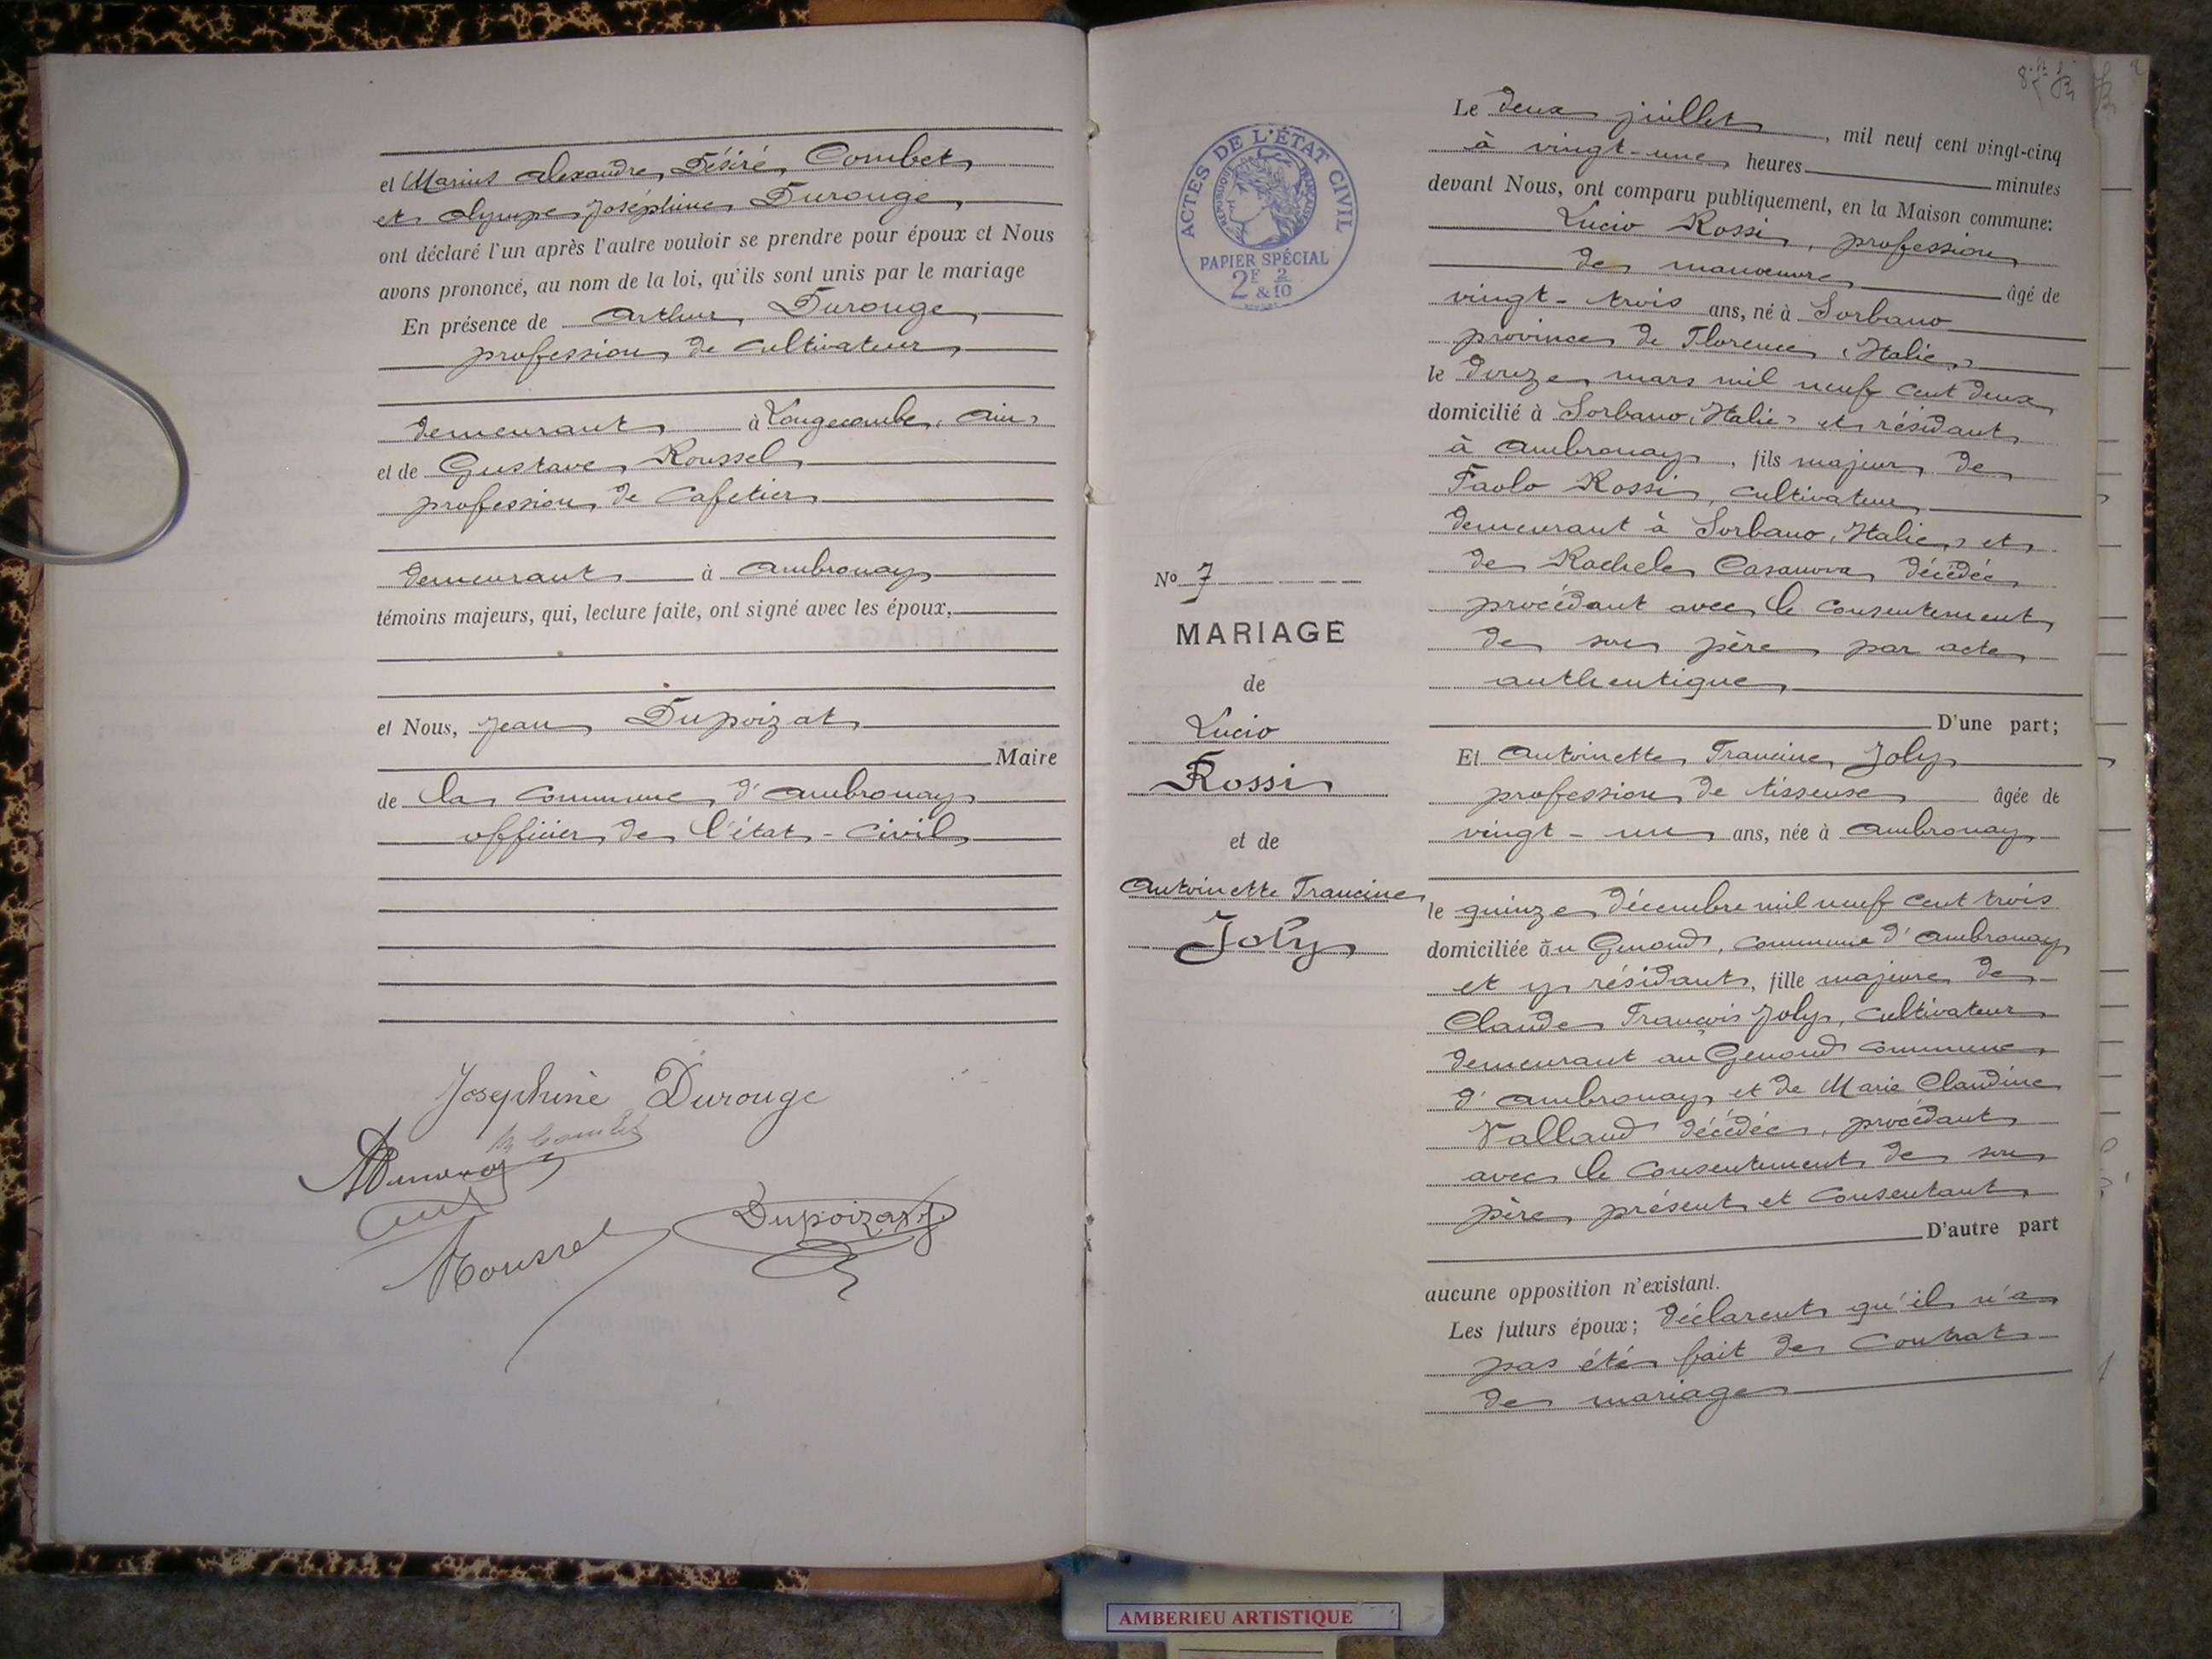 et Marius Alexandre, Désiré, Combet,
et Olympe Joséphine Durouge,
ont déclaré l'un après l'autre vouloir se prendre pour époux et Nous
avons prononcé, au nom de la loi, qu'ils sont unis par le mariage
En présence de Arthur Durouge,
profession de cultivateur,
demeurant à Longecombe, (Ain)
et de Gustave Roussel,
profession de cafetier
demeurant à Ambronay
témoins majeurs, qui, lecture faite, ont signé avec les époux,
et Nous, Jean Dupoizat,
Maire
de la commune d'Ambronay
officier de l'état-civil
Josephine Durouge
Roussel
Dupoizat J.
ACTES DE L'ÉTAT CIVIL
RÉPUBLIQUE FRANÇAISE
PAPIER SPÉCIAL
2F & 2/10
No 7
MARIAGE
de
Lucio
Rossi
et de
Antoinette Francine
Joly
Le deux juillet, mil neuf cent vingt-cinq
à vingt-une heures minutes
devant Nous, ont comparu publiquement, en la Maison commune:
Lucio Rossi, profession
de manœuvre âgé de
vingt-trois ans, né à Sorbano
province de Florence (Italie)
le douze mars mil neuf cent deux
domicilié à Sorbano (Italie) et résidant
à Ambronay, fils majeur de
Paolo Rossi, cultivateur
demeurant à Sorbano (Italie) et
de Rachele Casanova décédée
procédant avec le consentement
de son père par acte
authentique
D'une part;
Et Antoinette Francine Joly
profession de tisseuse âgée de
vingt-un ans, née à Ambronay
le quinze décembre mil neuf cent trois
domiciliée au Genoud, commune d'Ambronay
et y résidant, fille majeure de
Claude François Joly, cultivateur
demeurant au Genoud commune
d'Ambronay et de Marie Claudine
Valland décédée, procédant
avec le consentement de son
père présent et consentant
D'autre part
aucune opposition n'existant.
Les futurs époux; déclarent qu'il n'a
pas été fait de contrat
de mariage
AMBERIEU ARTISTIQUE